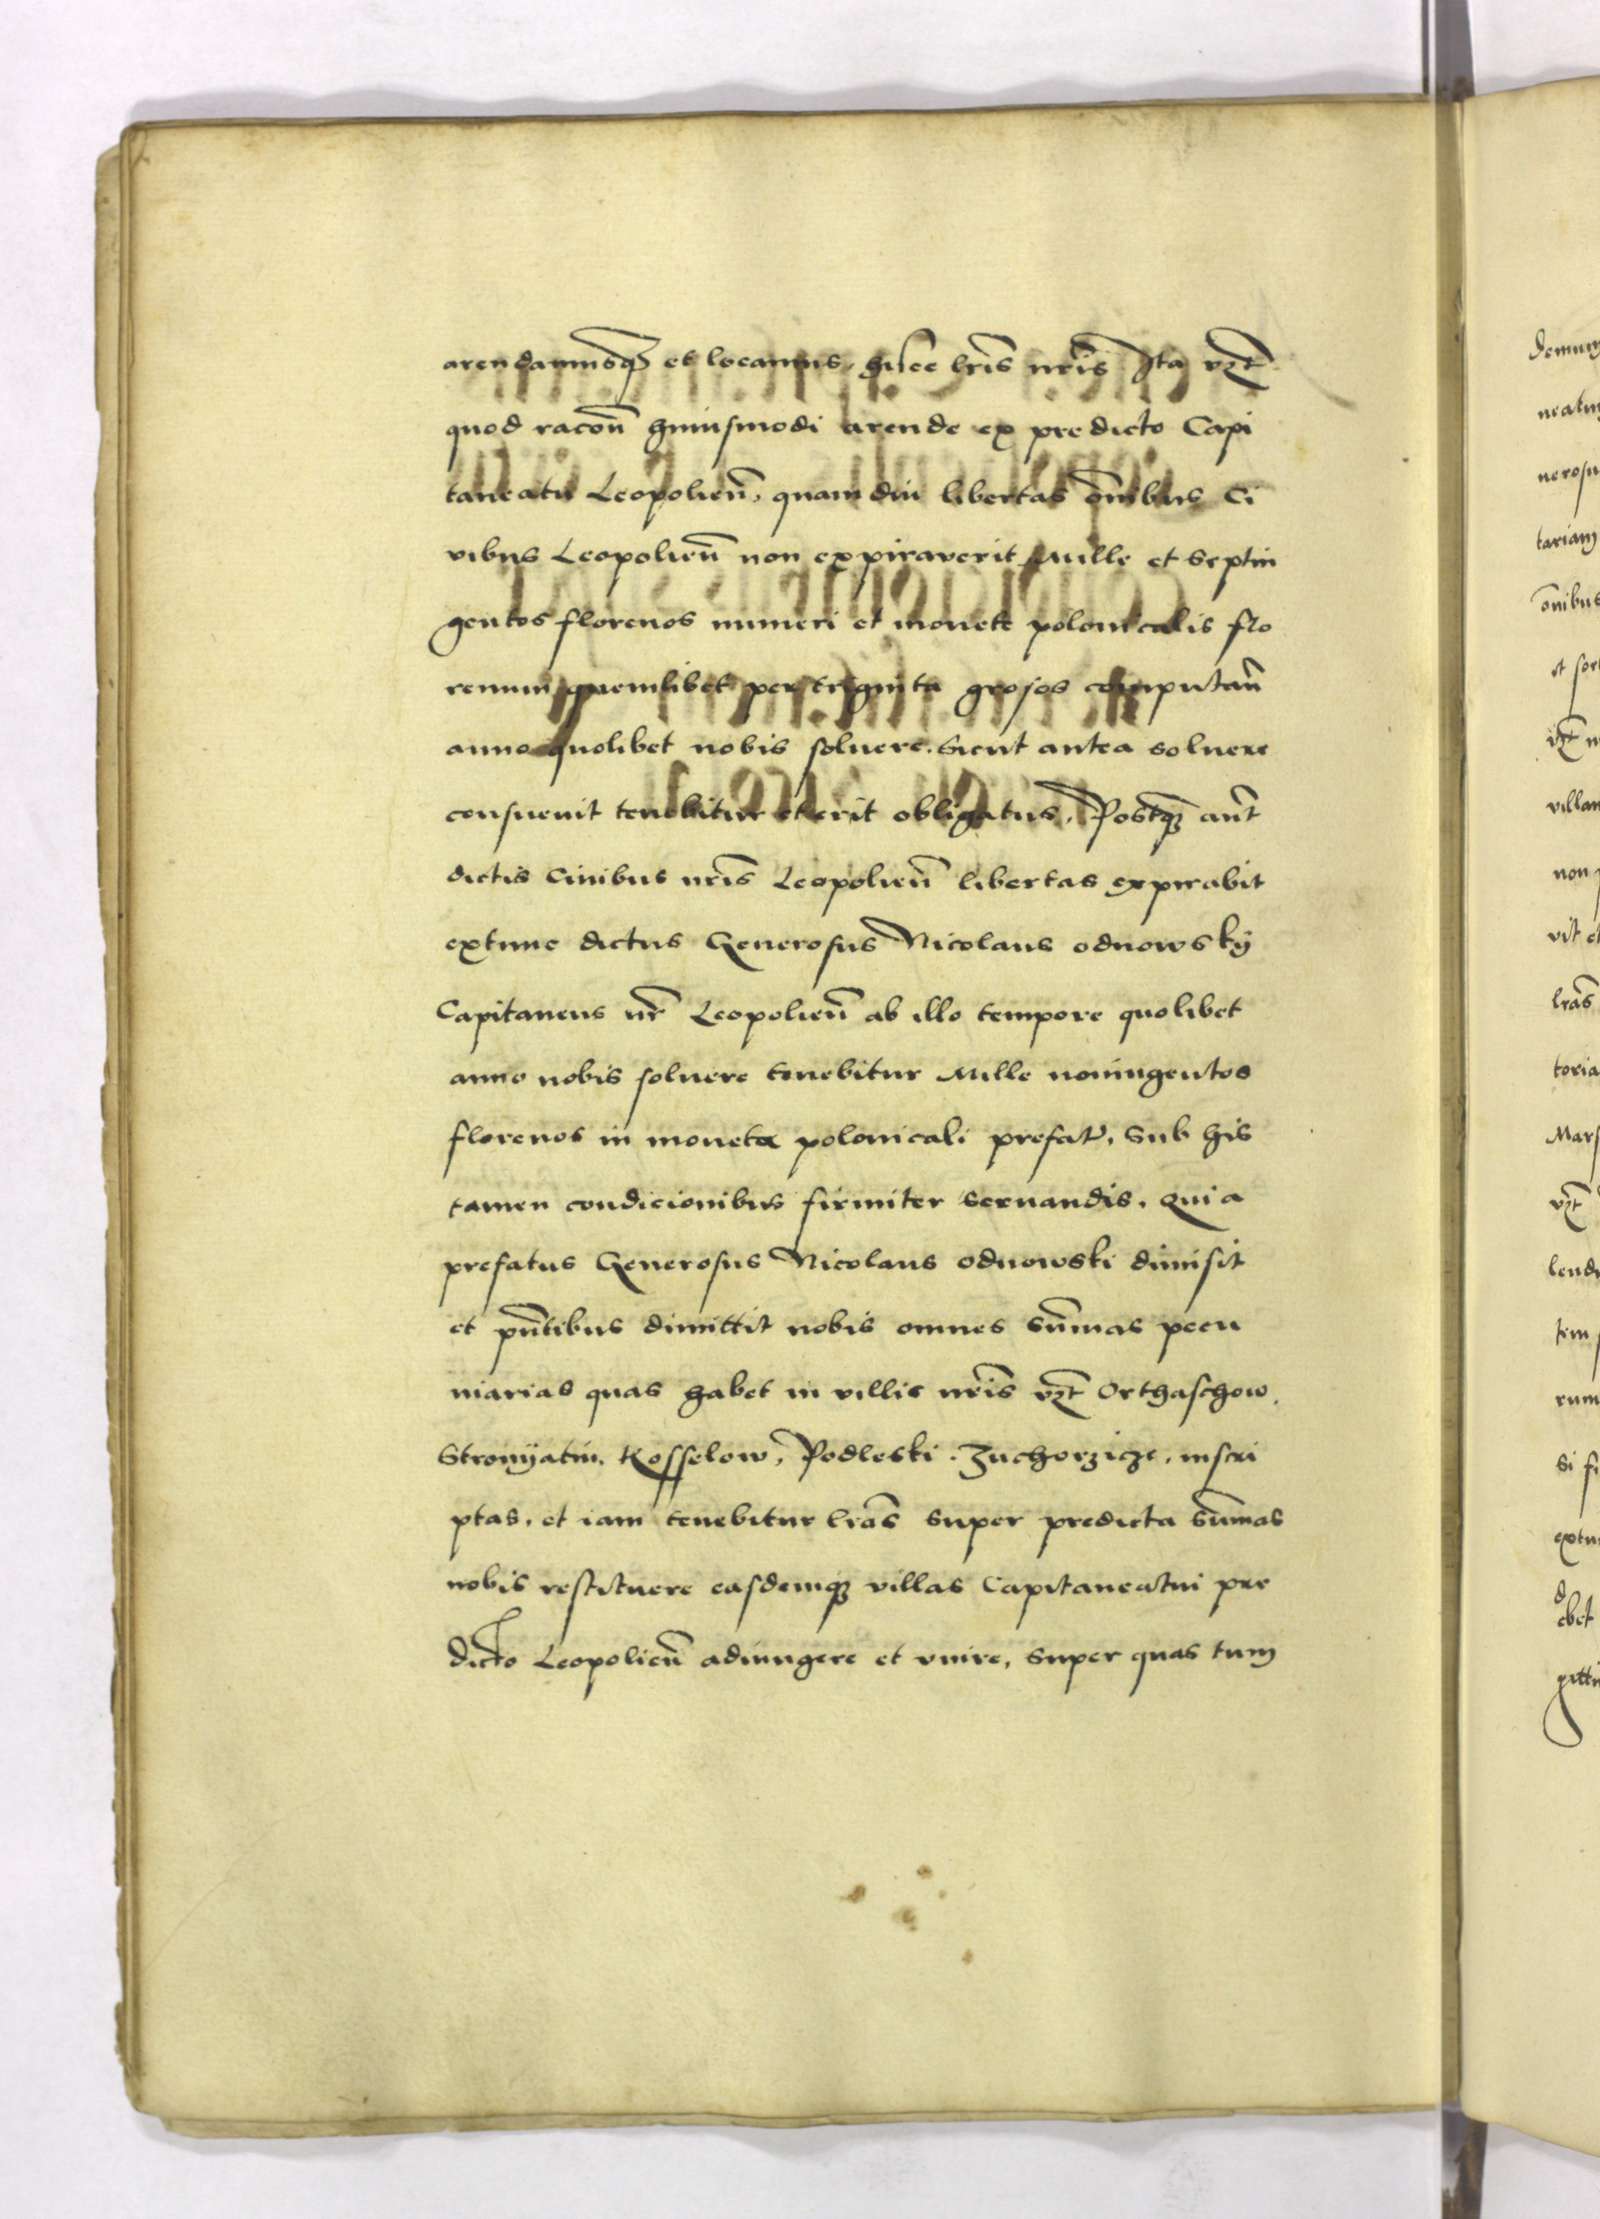 arendamusq et locamus, hisce lris nris Ita vzt
quod racon huiusmodi arende ex predicto Capi
taneatu Leopolien, quam diu libertas omibus Ci
vibus Leopolien non expiraverit Mille et Septin
gentos florenos numeri et monete polonicalis flo
renum quemlibet per triginta grosos computan
anno quolibet nobis soluere. Sicut antea soluere
consuevit tenebitur et erit obligatus. Postq aut
dictis Ciuibus nris Leopolien libertas expirabit
extunc dictus Generosus Nicolaus odnowskÿ
Capitaneus nr Leopolien ab illo tempore quolibet
anno nobis soluere tenebitur Mille noningentos
florenos in moneta polonicali prefat, Sub his
tamen condicionibus firmiter seruandis. Quia
prefatus Generosus Nicolaus odnowski dimisit
et pntibus dimittit nobis omnes Summas pecu
niarias quas habet in villis nris vzt Orthaschow,
Stronÿatin, Kosselow, Podleski, Zuchorzicze, inscri
ptas, et iam tenebitur lras super predicta summas
nobis restituere easdemq villas Capitaneatui pre
dicto Leopolien adiungere et vnire, super quas tum